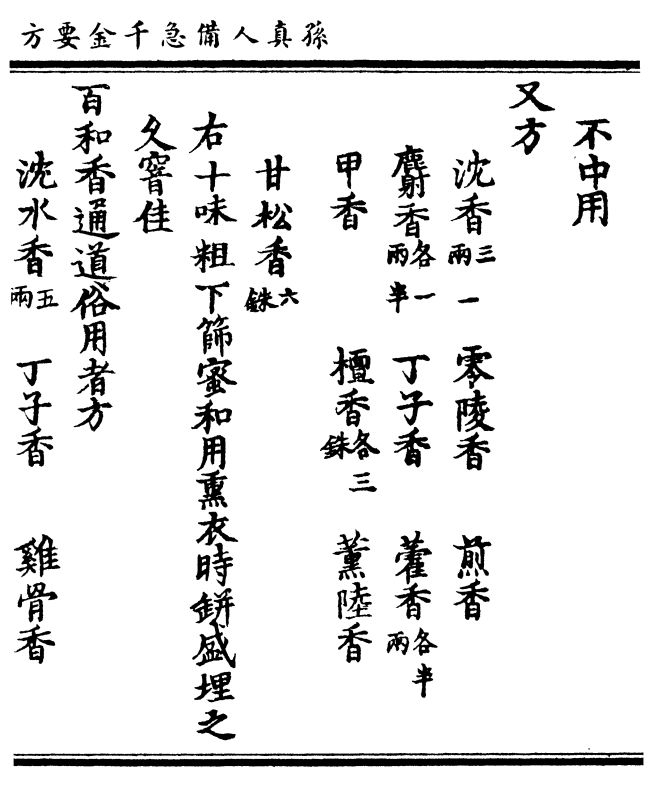 孫真人備急千金要方
不中用
又方
沈香三兩一 零陵香 煎香
麝香各一兩半 丁子香 藿香各半兩
甲香 檀香各三銖 薰陸香
甘松香六銖
右十味粗下篩蜜和用熏衣時缾盛埋之
久窨佳
百和香通道俗用者方
沈水香五兩 丁子香 雞骨香